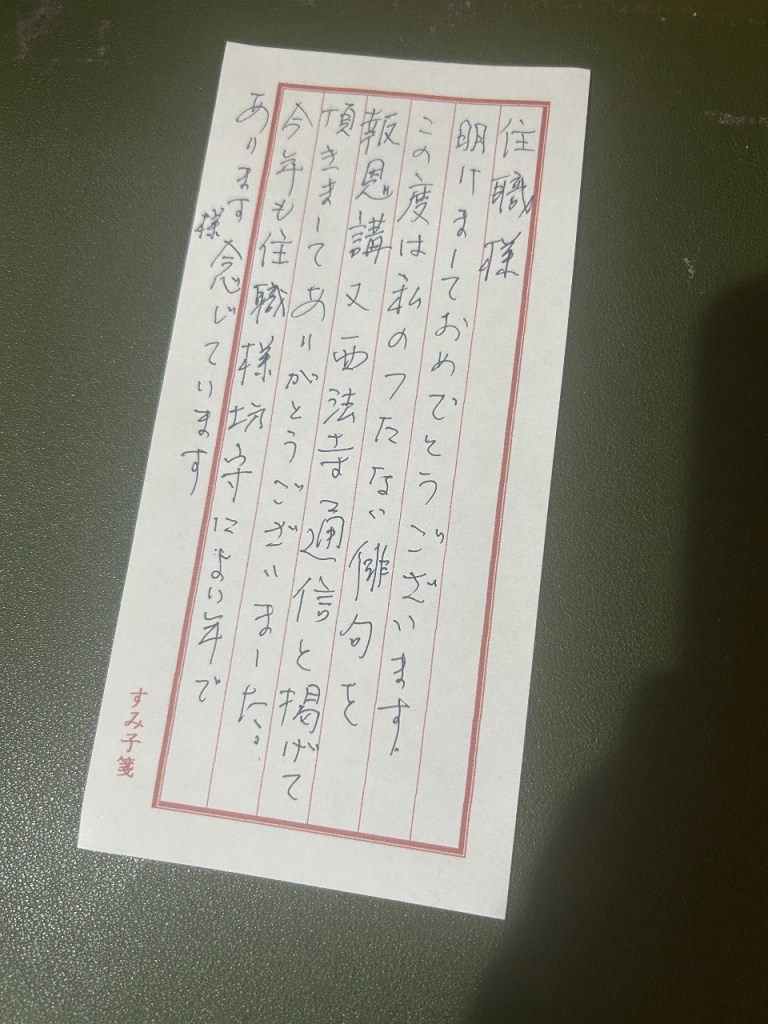 住職様
明けましておめでとうございます。
この度は私のつたない俳句を
報恩講又西法寺通信と掲げて
頂きましてありがとうございました。
今年も住職様坊守によい年で
あります様念じています
すみ子箋